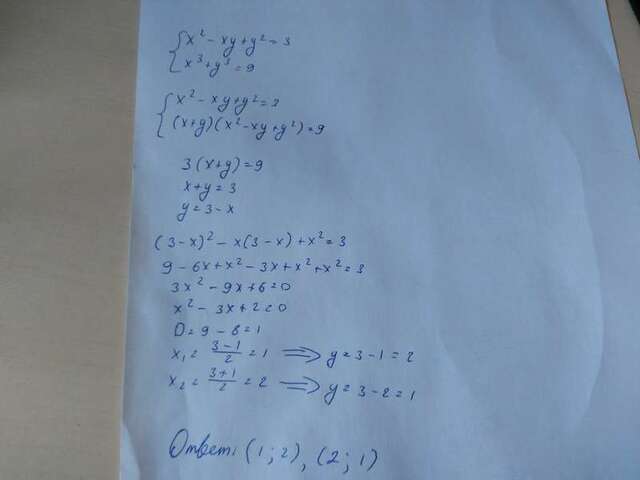 x² - xy + y² = 3
x³ + y³ = 9
x² - xy + y² = 3
(x+y)(x² - xy + y²) = 9
3(x+y) = 9
x + y = 3
y = 3 - x
(3-x)² - x(3-x) + x² = 3
9 - 6x + x² - 3x + x² + x² = 3
3x² - 9x + 6 = 0
x² - 3x + 2 = 0
D = 9 - 8 = 1
x₁ = (3-1)/2 = 1 ⟹ y = 3 - 1 = 2
x₂ = (3+1)/2 = 2 ⟹ y = 3 - 2 = 1
Ответ: (1; 2), (2; 1)